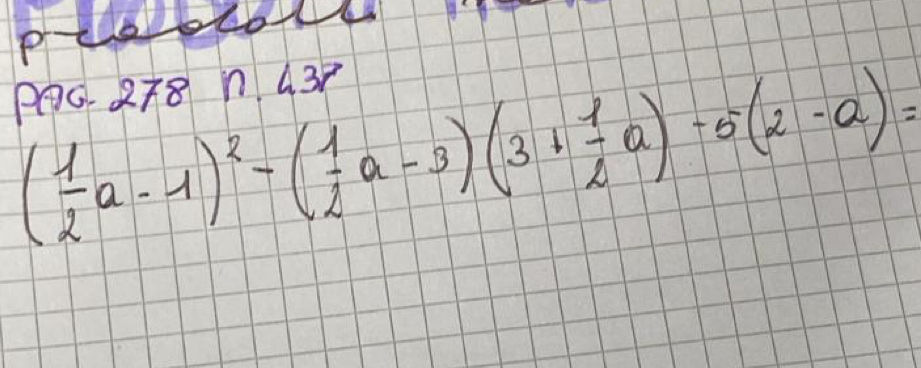 PAG. 278 n. 437
(1/2 a - 1)² - (1/2 a - 3)(3 + 1/2 a) - 5(2 - a) =